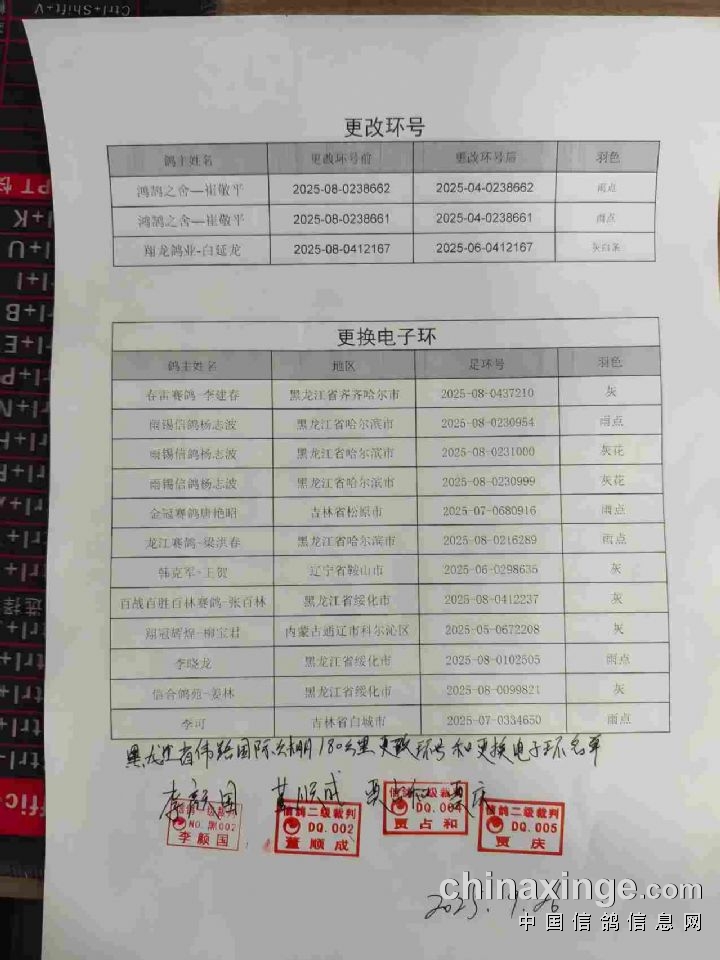 Ctrl+Shift+V
更改环号
鸽主姓名 更改环号前 更改环号后 羽色
鸿鹄之舍—崔敬平 2025-08-0238662 2025-04-0238662 雨点
鸿鹄之舍—崔敬平 2025-08-0238661 2025-04-0238661 雨点
翔龙鸽业-白延龙 2025-08-0412167 2025-06-0412167 灰白条
更换电子环
鸽主姓名 地区 足环号 羽色
春雷赛鸽-李建春 黑龙江省齐齐哈尔市 2025-08-0437210 灰
雨锡信鸽杨志波 黑龙江省哈尔滨市 2025-08-0230954 雨点
雨锡信鸽杨志波 黑龙江省哈尔滨市 2025-08-0231000 灰花
雨锡信鸽杨志波 黑龙江省哈尔滨市 2025-08-0230999 灰花
金冠赛鸽唐艳昭 吉林省松原市 2025-07-0680916 雨点
龙江赛鸽-梁洪春 黑龙江省哈尔滨市 2025-08-0216289 雨点
韩克军-王贺 辽宁省鞍山市 2025-06-0298635 灰
百战百胜百林赛鸽-张百林 黑龙江省绥化市 2025-08-0412237 灰
翔冠辉煌-柳宝君 内蒙古通辽市科尔沁区 2025-05-0672208 灰
李晓龙 黑龙江省绥化市 2025-08-0102505 雨点
信合鸽苑-姜林 黑龙江省绥化市 2025-08-0099821 灰
李可 吉林省白城市 2025-07-0334650 雨点
黑龙江省伟路国际公棚180公里更改环号和更换电子环名单
李颜国 董顺成 贾占和 贾庆
信鸽一级裁判 NO.黑002 李颜国
信鸽二级裁判 DQ.002 董顺成
信鸽二级裁判 贾占和
信鸽二级裁判 DQ.005 贾庆
chinaxinge.com
中国信鸽信息网